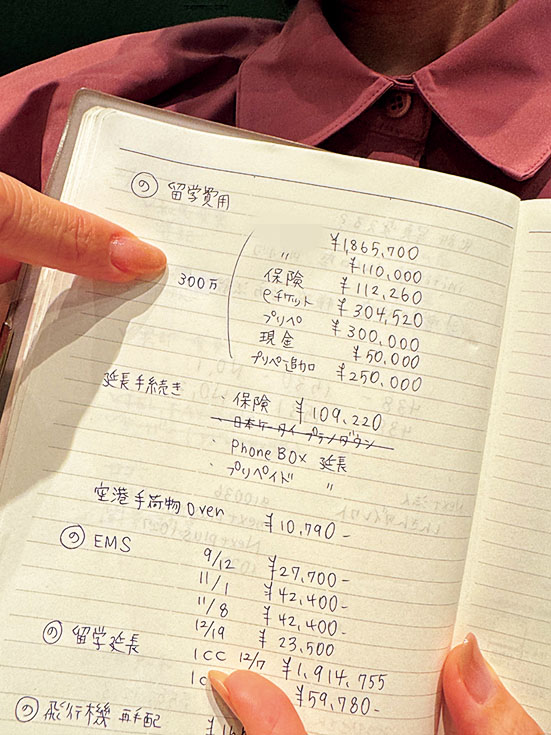 の 留学費用
¥1,865,700
〃 ¥110,000
300万 保険 ¥112,260
eチケット ¥304,520
プリペ ¥300,000
現金 ¥50,000
プリペ追加 ¥250,000
延長手続き ・保険 ¥109,220
・日本ケータイ プランダウン
・Phone BOX 延長
・プリペイド 〃
空港手荷物 over ¥10,790-
の EMS 9/12 ¥27,700-
11/1 ¥42,400-
11/8 ¥42,400-
12/19 ¥23,500
の 留学延長 ICC 12/7 ¥1,914,755
¥59,780-
の 飛行機 再手配